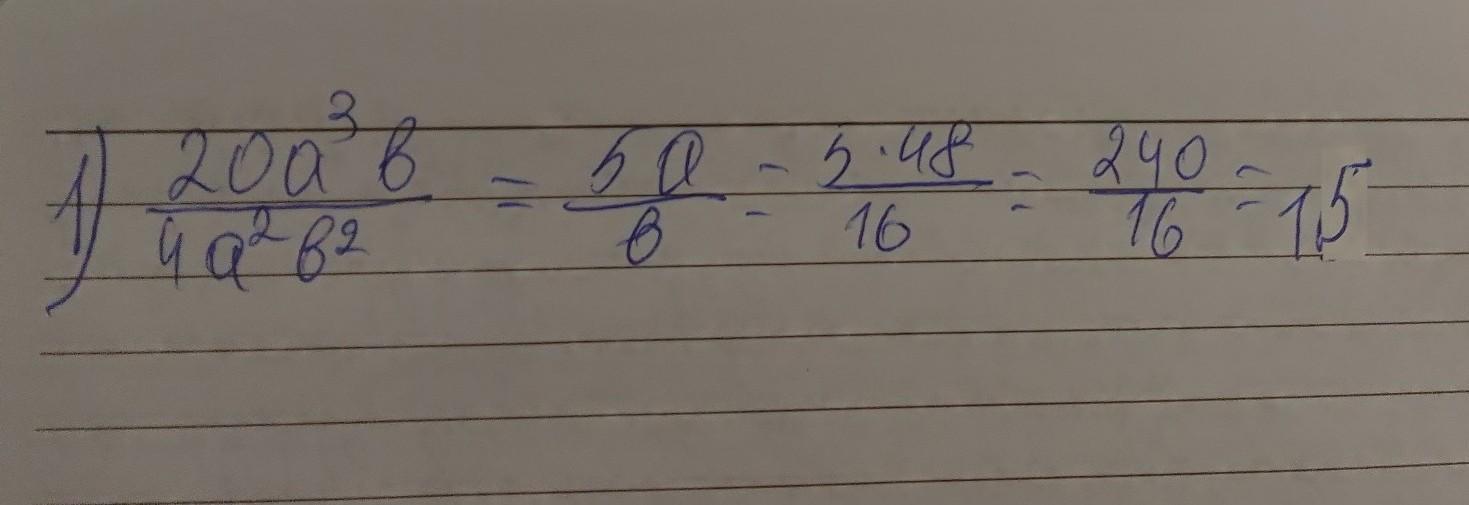 1) 20a³в/4a²в² = 5a/в = 5·48/16 = 240/16 = 15